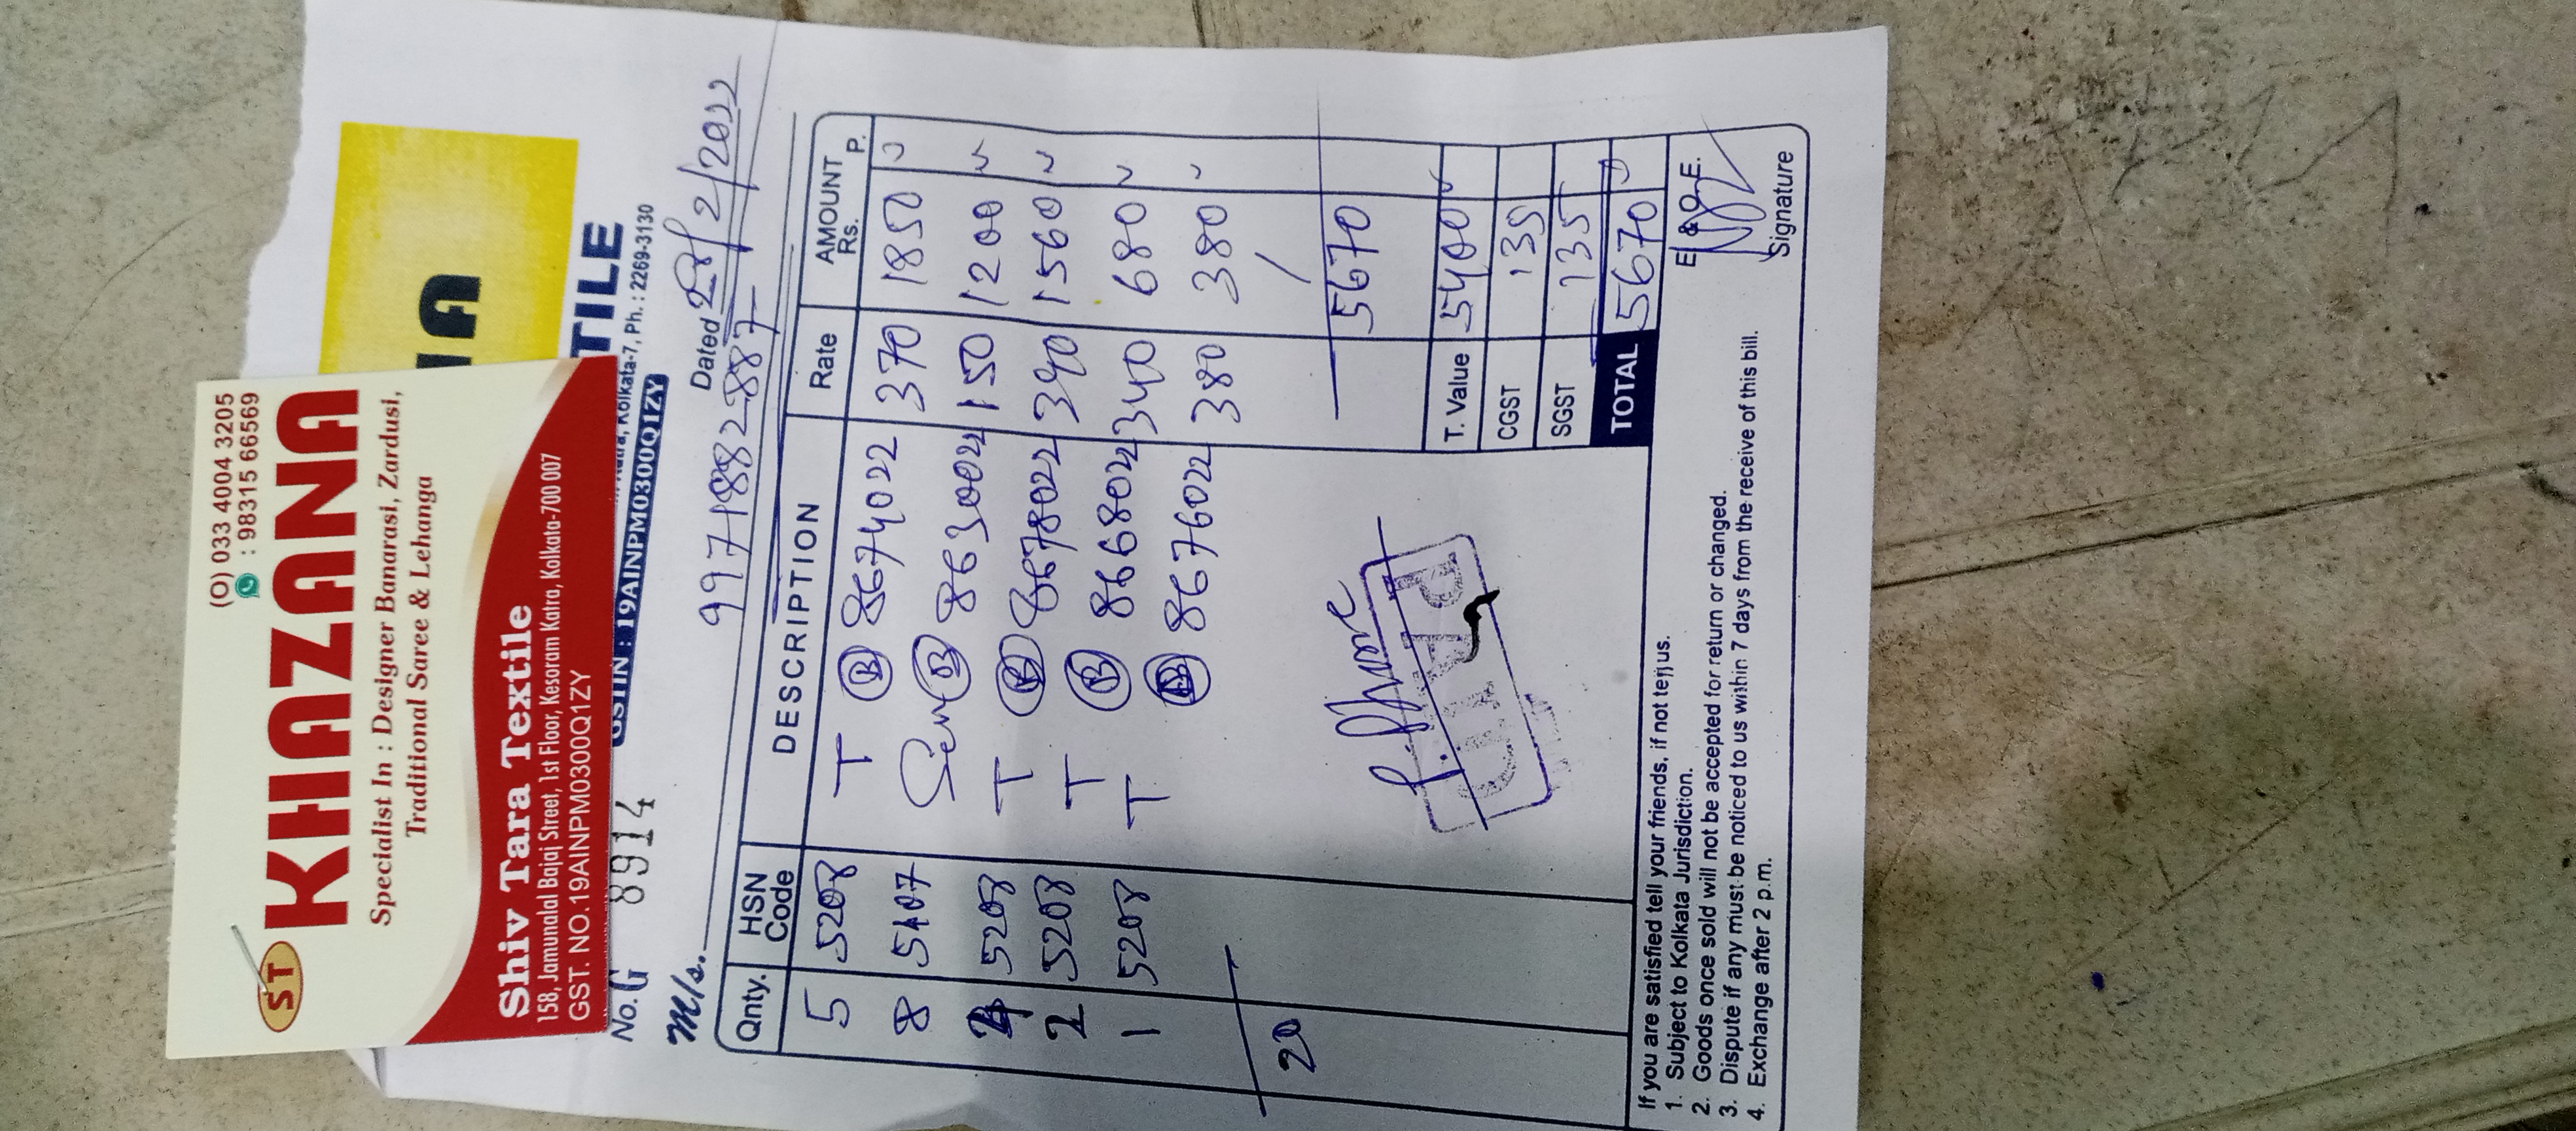 (O) 033 4004 3205
: 98315 66569
ST KHAZANA
Specialist In : Designer Banarasi, Zardusi,
Traditional Saree & Lehanga
Shiv Tara Textile
158, Jamunalal Bajaj Street, 1st Floor, Kesoram Katra, Kolkata-700 007
GST. NO.19AINPM0300Q1ZY
NA
TILE
Kolkata-7, Ph. : 2269-3130
GSTIN : 19AINPM0300Q1ZY
No. G 8914 Dated 28/2/2022
M/s. 9971882887
Qnty. HSN Code DESCRIPTION Rate AMOUNT Rs. P.
5 5208 T B 8674022 370 1850
8 5407 B 8630022 150 1200
4 5208 T B 8678022 390 1560
2 5208 T B 8668022 340 680
1 5208 T B 8676022 380 380
20 5670
PAID
T. Value 5400
CGST 135
SGST 135
TOTAL 5670
If you are satisfied tell your friends, if not tell us.
1. Subject to Kolkata Jurisdiction.
2. Goods once sold will not be accepted for return or changed.
3. Dispute if any must be noticed to us within 7 days from the receive of this bill.
4. Exchange after 2 p.m.
E. & O. E.
Signature